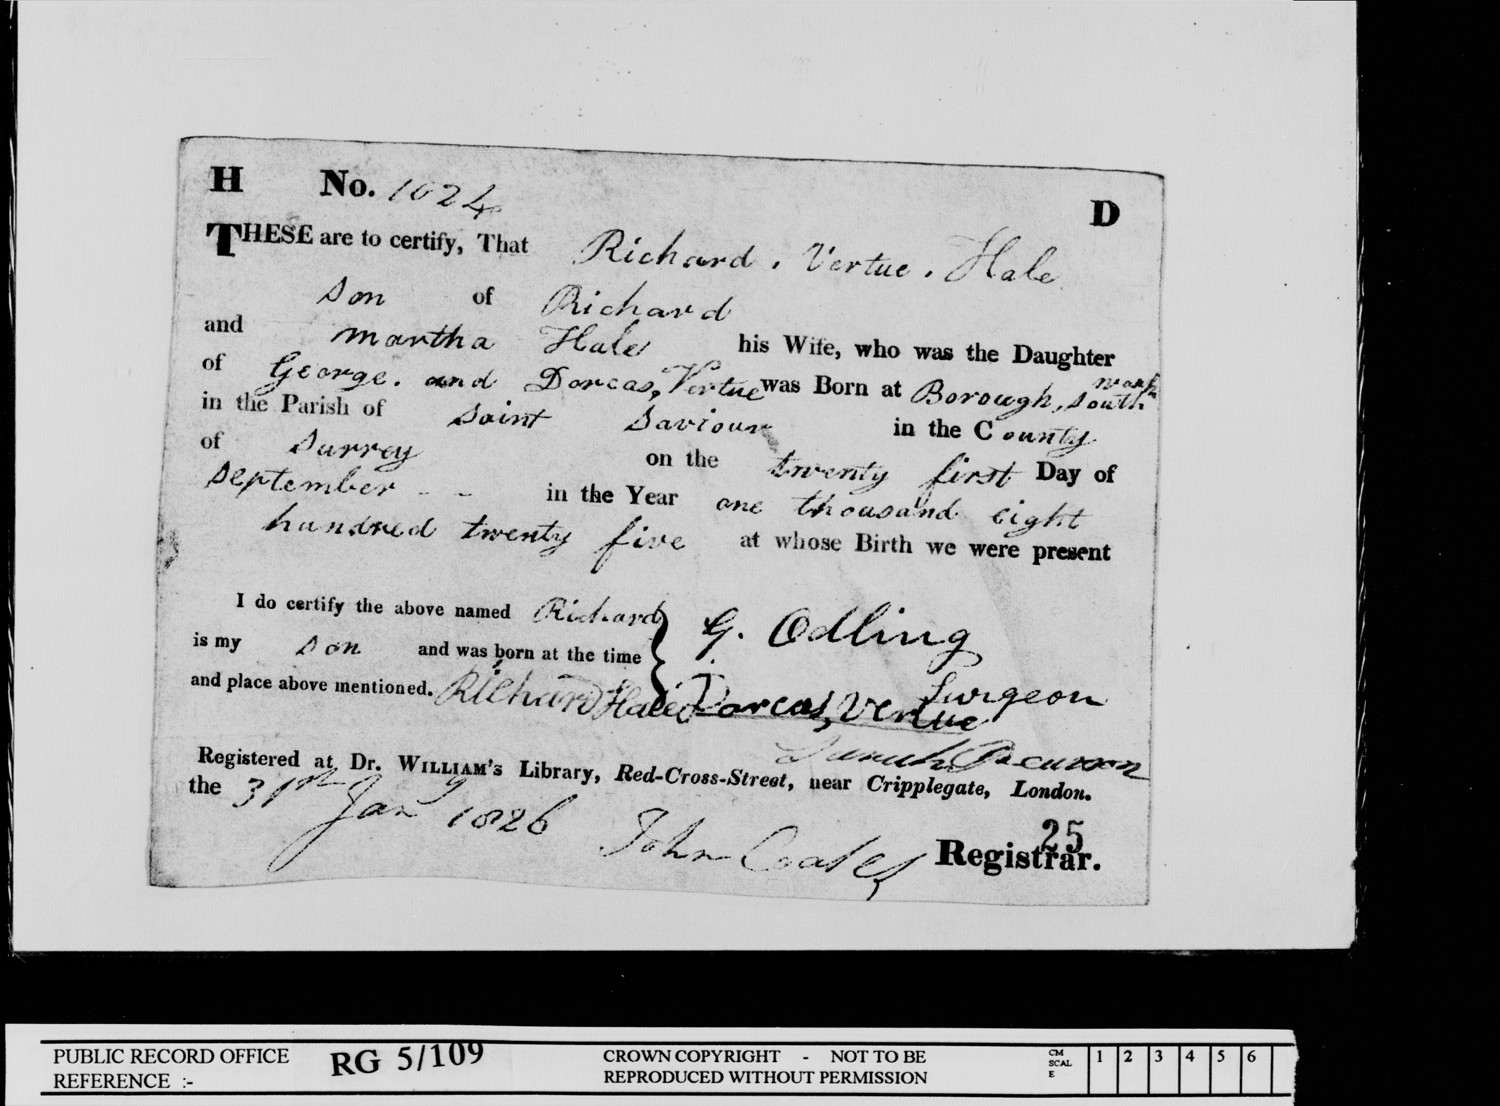 H No. 1024 D
THESE are to certify, That Richard. Vertue. Hale
son of Richard
and martha Hale his Wife, who was the Daughter
of George. and Dorcas, Vertue was Born at Borough, southwark
in the Parish of saint saviour in the County
of surrey on the twenty first Day of
september - - in the Year one thousand eight
hundred twenty five at whose Birth we were present
I do certify the above named Richard
is my son and was born at the time
and place above mentioned. Richard Hale
G. Odling
Surgeon
Dorcas, Vertue
Registered at Dr. WILLIAM's Library, Red-Cross-Street, near Cripplegate, London.
the 31st Jany 1826 John Coates Registrar.
25
PUBLIC RECORD OFFICE
REFERENCE :-
RG 5/109
CROWN COPYRIGHT - NOT TO BE
REPRODUCED WITHOUT PERMISSION
CM
SCAL
E
1 2 3 4 5 6